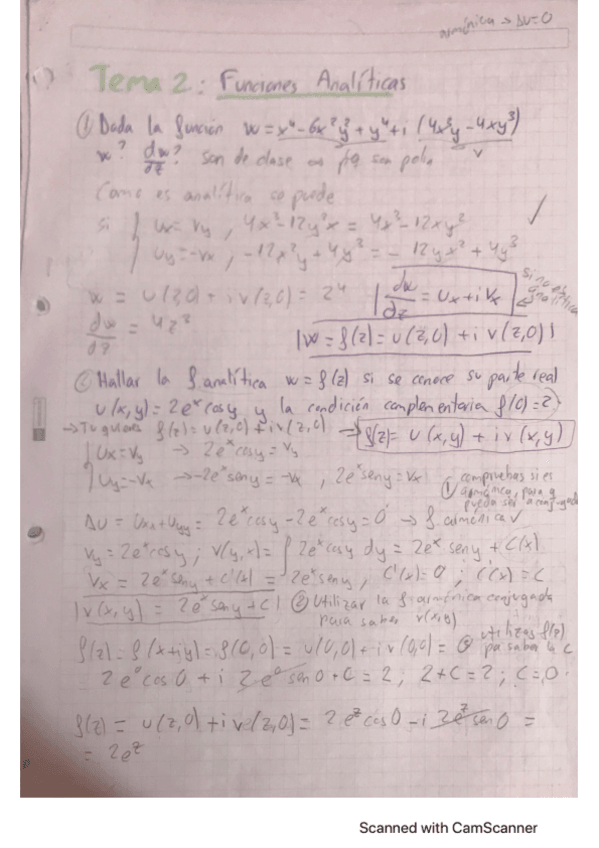 armónica → ΔU=0
Tema 2: Funciones Analíticas
① Dada la función w = x⁴ - 6x²y² + y⁴ + i (4x³y - 4xy³)
v
w? dw/dz? son de clase ∞ pq son
Como es analítica se puede
si { Ux = Vy , 4x³ - 12y²x = 4x³ - 12xy² ✓
Uy = -Vx , -12x²y + 4y³ = - 12yx² + 4y³
w = U(z,0) + iv(z,0) = z⁴ | dw/dz = Ux + i Vx | si no es analítica
dw/dz = 4z³ | w = f(z) = U(z,0) + i v(z,0) |
② Hallar la f analítica w = f(z) si se conoce su parte real
U(x,y) = 2eˣ cos y y la condición complementaria f(0) = 2
→ Tu quieres f(z) = U(z,0) + i v(z,0) → f(z) = U(x,y) + i v(x,y)
{ Ux = Vy → 2eˣ cos y = Vy
Uy = -Vx → -2eˣ sen y = -Vx , 2eˣ sen y = Vx | ① compruebas si es
armónica, para q
pueda ser conjugada
ΔU = Uxx + Uyy = 2eˣ cos y - 2eˣ cos y = 0 → f armónica ✓
Vy = 2eˣ cos y ; v(y,x) = ∫ 2eˣ cos y dy = 2eˣ sen y + C(x)
Vx = 2eˣ sen y + C'(x) = 2eˣ sen y , C'(x) = 0 ; C(x) = C
| v(x,y) = 2eˣ sen y + C | ② Utilizar la f armónica conjugada
para saber v(x,y)
f(z) = f(x+iy) = f(0,0) = U(0,0) + i v(0,0) = ③ utilizas f(z)
pa saber la C
2e⁰ cos 0 + i 2e⁰ sen 0 + C = 2 ; 2 + C = 2 ; C = 0
f(z) = U(z,0) + i v(z,0) = 2eᶻ cos 0 - i 2eᶻ sen 0 =
= 2eᶻ
Scanned with CamScanner